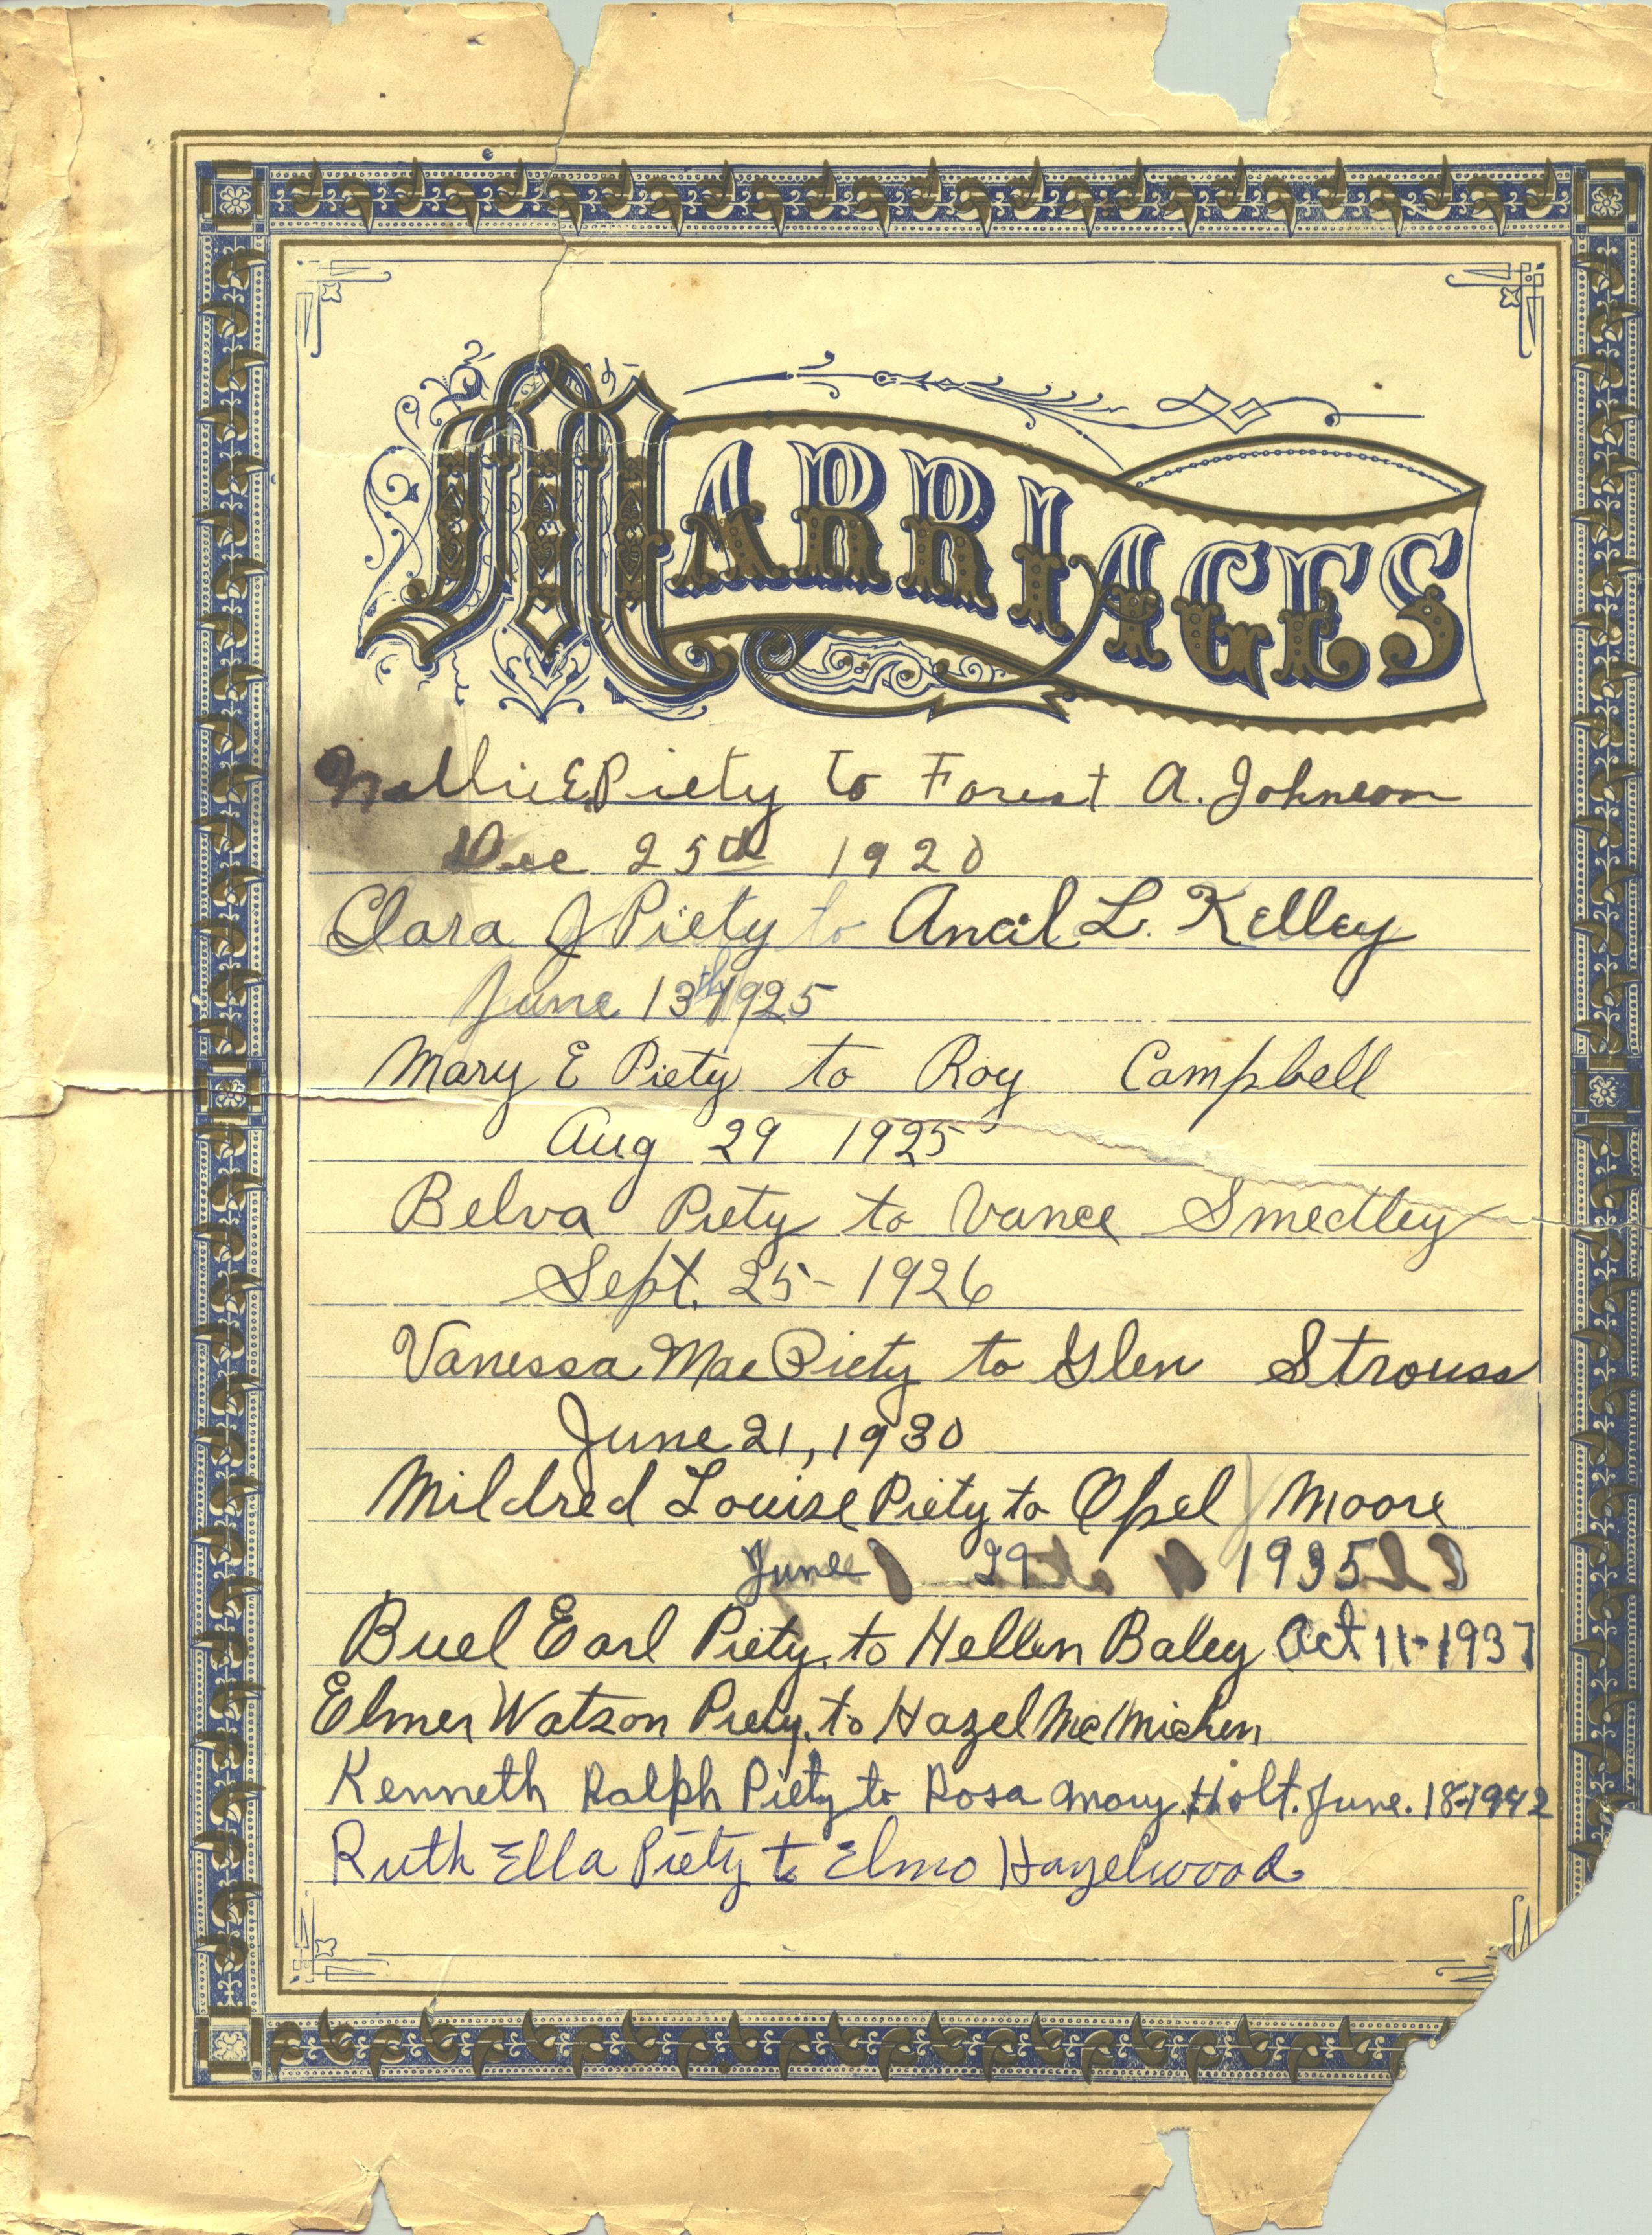 MARRIAGES
Nellie E Piety to Forest A. Johnson
Dec 25th 1920
Clara J Piety to Ancil L. Kelley
June 13th 1925
Mary E Piety to Roy Campbell
Aug 29 1925
Belva Piety to Vance Smedley
Sept. 25 - 1926
Vanessa Mae Piety to Glen Strouss
June 21, 1930
Mildred Louise Piety to Opel Moore
June 29 1935
Buel Earl Piety. to Hellen Baley Oct 11-1937
Elmer Watson Piety. to Hazel McMichen
Kenneth Ralph Piety to Rosa Mary Holt. June. 18-1942
Ruth Ella Piety to Elmo Hazelwood